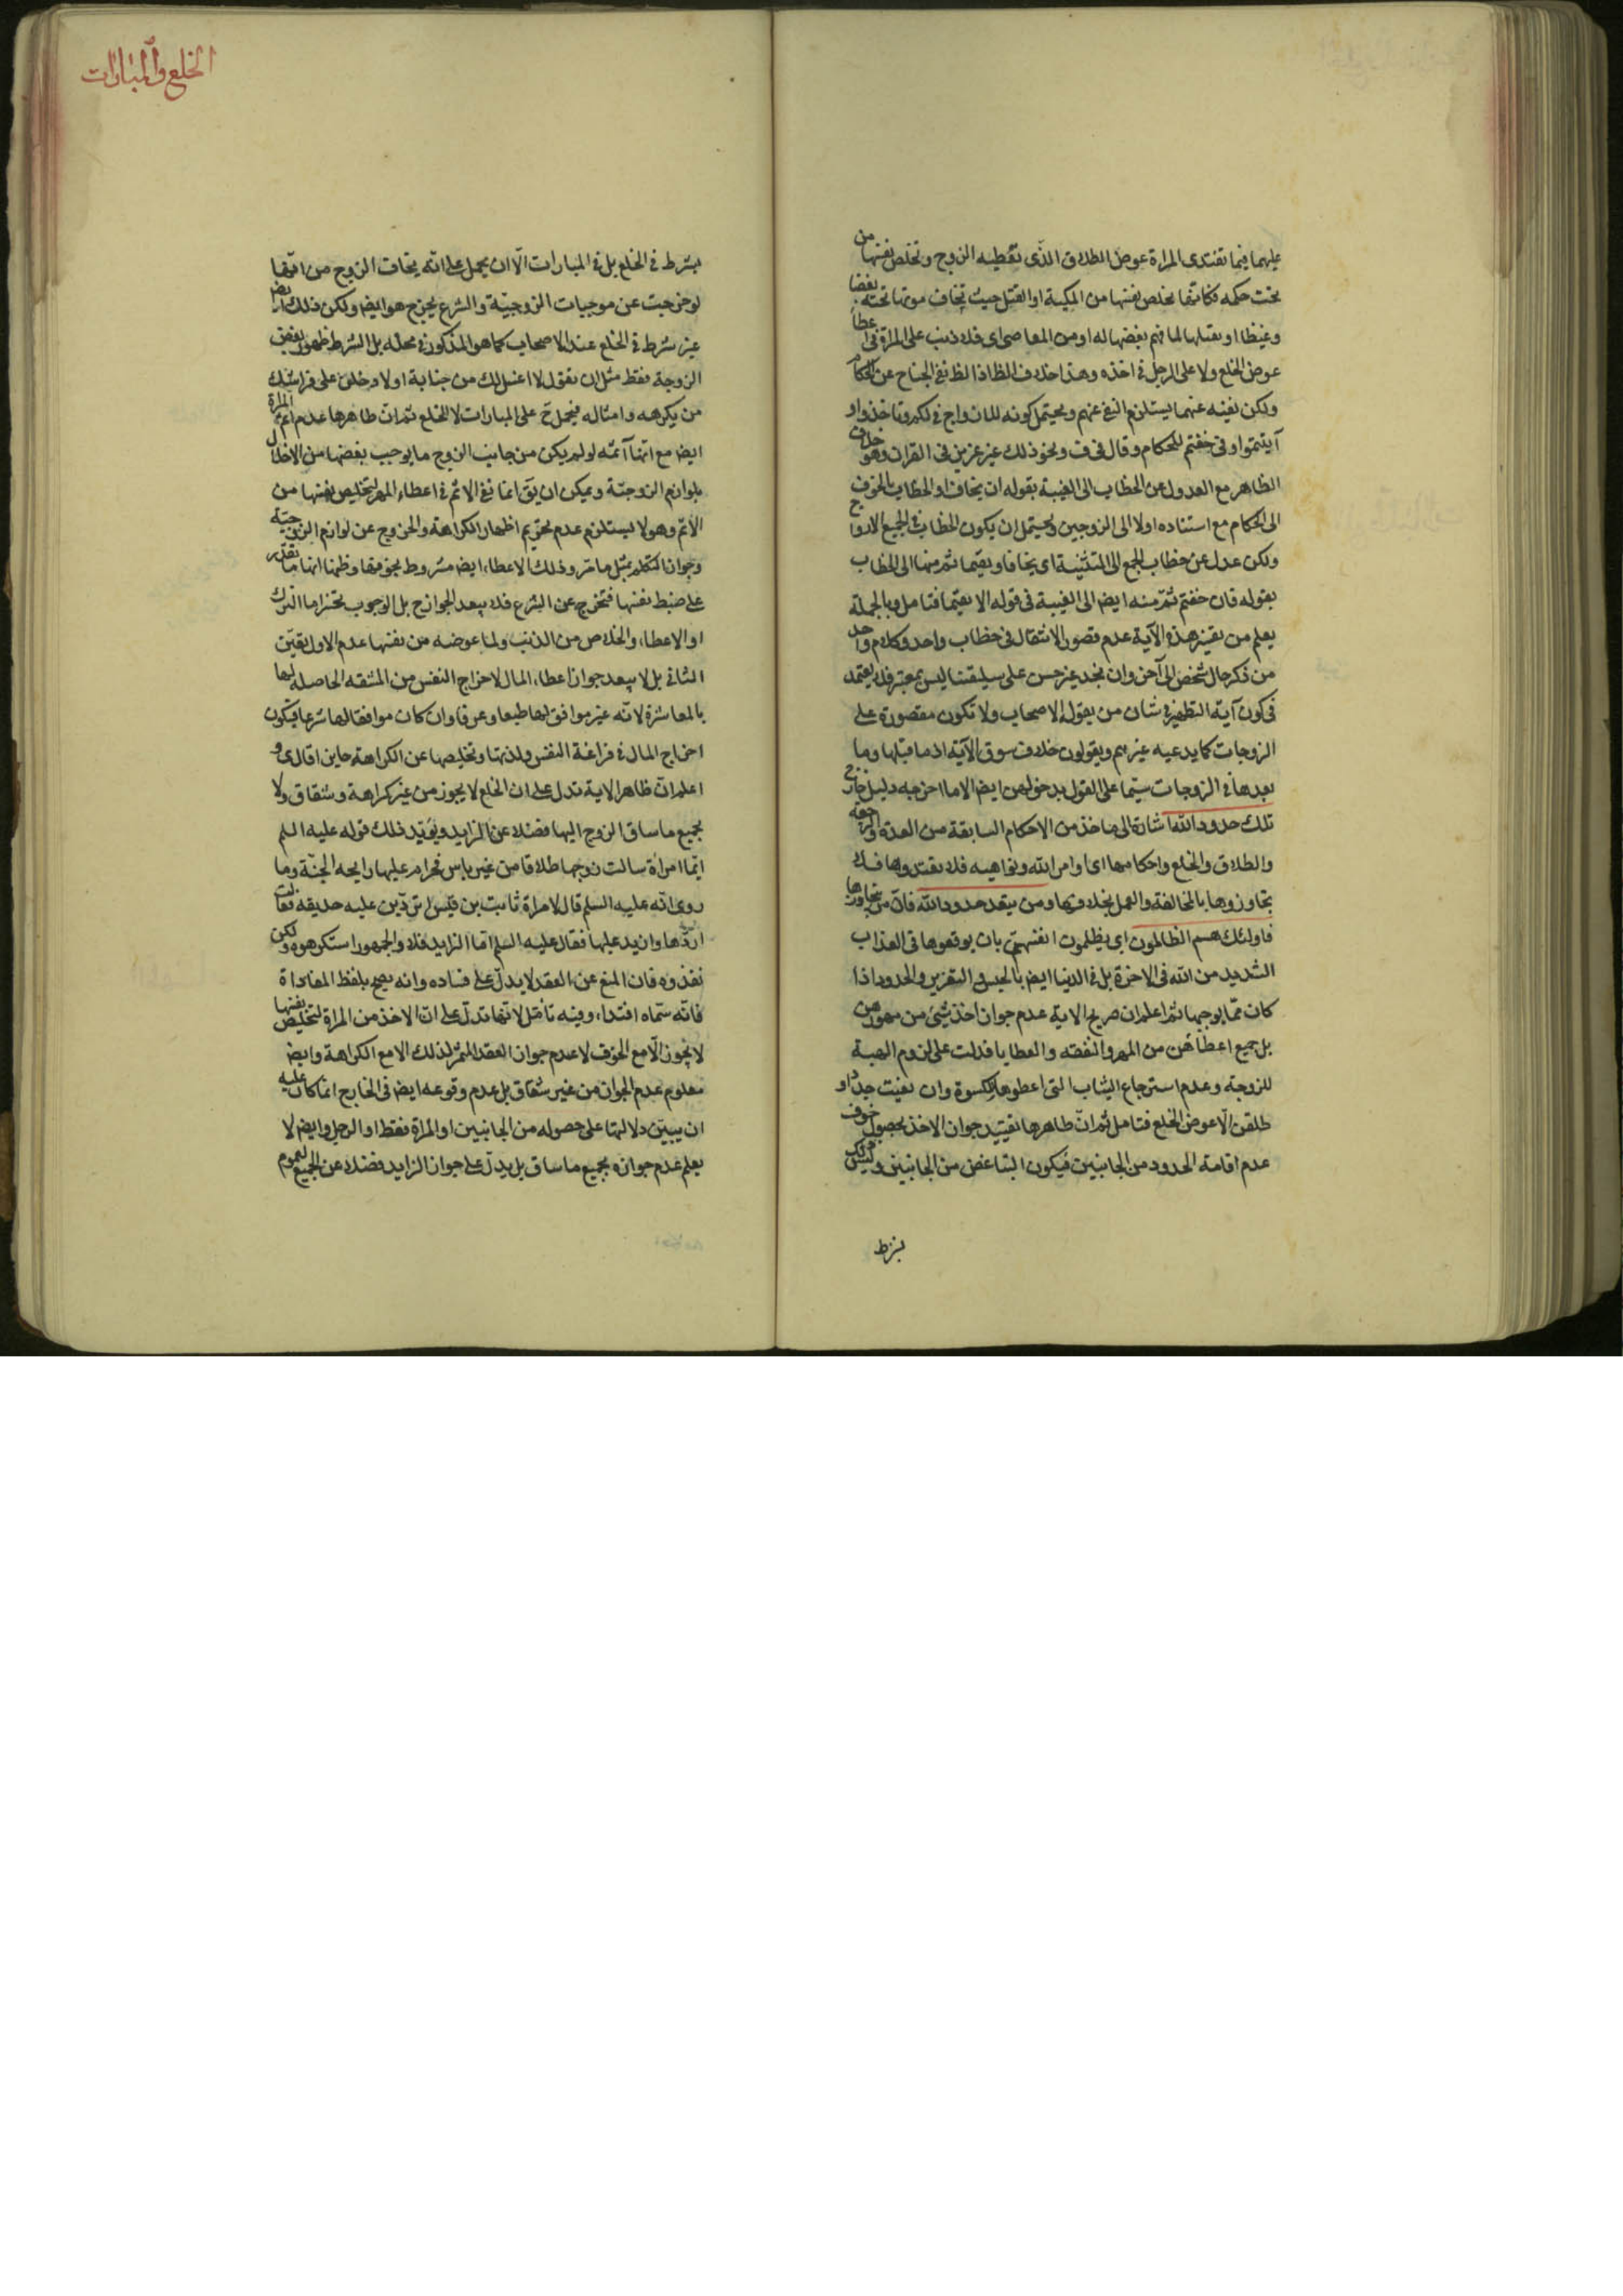 عليهما فيما تفتدى المراة عوض الطلاق الذى تعطيه الزوج وتخلص نفسها من
تحت حكمه فكانها تخلص نفسها من او القتل حيث تخاف موتها تحته بغضا
وغيظا او يقتلها لما فهم بغضها له او من المعاصى اى فلا ذنب على المراة فى اعطا
عوض الخلع ولا على الرجل فى اخذه وهذا خلاف الظ اذ الظ نفى الجناح عن الحكام
ولكن نفيه عنهما يستلزم النفى عنهم ويحتمل كونه للازواج فى لكم وتاخذوا و
آتيتموا وفى خفتم للحكام وقال فى ف ونحو ذلك غير عزيز فى القران وهو خلاف
الظاهر مع العدول عن الخطاب الى الغيبة بقوله ان يخافا والخطاب بالخوف
الى الحكام مع اسناده اولا الى الزوجين ويحتمل ان يكون الخطاب فى الجميع للازواج
ولكن عدل عن خطاب الجمع الى التثنية اى يخافا ويقيما ثم منها الى الخطاب
بقوله فان خفتم ثم منه ايض الى الغيبة فى قوله الا يقيما فتامل وبالجملة
يعلم من هذه الآية عدم قصور الانتقال فى خطاب واحد وكلام واحد
من ذكر حال شخص الى آخر وان نجد غير حسن على سليقتنا ليس بمعتبر فلا يعتمد
فى كون آية التطهير فى شان من يقوله الاصحاب ولا تكون مقصورة على
الزوجات كما يدعيه غيرهم ويقولون خلاف سوق الآية اذ ما قبلها وما
بعدها فى الزوجات سيما على القول بدخولهن ايض الا ما اخرجه دليل خارج
تلك حدود الله اشارة الى ما اخذ من الاحكام السابقة من العدة والرجعة
والطلاق والخلع واحكامها اى اوامر الله ونواهيه فلا تعتدوها فلا
تتجاوزوها بالمخالفة والعمل بخلافها ومن يتعد حدود الله فان من يتجاوزها
فاولئك هم الظالمون اى يظلمون انفسهم بان يوقعوها فى العذاب
الشديد من الله فى الاخرة بل فى الدنيا ايض بالحبس والتعزير والحدود اذا
كان مما يوجبها ثم اعلم ان صريح الاية عدم جواز اخذ شئ من مهورهن
بل جميع اعطائهن من المهر والنفقه والعطايا فدلت على لزوم الهبة
للزوجة وعدم استرجاع الثياب التى اعطوها للكسوة وان بقيت جددا و
طلقن الا عوض الخلع فتامل ثم ان ظاهرها تقييد جواز الاخذ بحصول خوف
عدم اقامة الحدود من الجانبين فيكون التباغض من الجانبين وليس ذلك
بشرط
الخلع والمبارات
بشرط فى الخلع بل فى المبارات الا ان يحمل على انه يخاف الزوج من انها
لو خرجت عن موجبات الزوجية والشرع يخرج هو ايض ولكن ذلك ايض
غير شرط فى الخلع عند الاصحاب كما هو المذكور فى محله بل الشرط ظهور بغض
الزوجة فقط مثل ان تقول لا اغتسل لك من جنابة او لادخلن على فراشك
من يكرهه وامثاله فيحمل ح على المبارات لا الخلع ثم ان ظاهرها عدم اثم المراة
ايض مع انها آثمه لو لم يكن من جانب الزوج ما يوجب بغضها من الاخلال
بلوازم الزوجية ويمكن ان يق انما نفى الاثم فى اعطاء المهر لتخليص نفسها من
الاثم وهو لا يستلزم عدم تحريم اظهار الكراهة والخروج عن لوازم الزوجية
وجواز التكلم بمثل ما مر وذلك الاعطاء ايض مشروط بخوفها وظنها انها ما تقدر
على ضبط نفسها فتخرج عن الشرع فلا يبعد الجواز ح بل الوجوب تخيرا ما الترك
او الاعطاء والخلاص من الذنب ولما عرضه من نفسها عدم الاول تعين
الثانى بل لا يبعد جواز اعطاء المال لاخراج النفس من المشقه الحاصلة لها
بالمعاشرة لانه غير موافق لها طبعا وعرفا وان كان موافقا لها شرعا فيكون
اخراج المال فى فراغة النفس ولذتها وتخليصها عن الكراهة جايزا قال ى و
اعلم ان ظاهر الاية تدل على ان الخلع لا يجوز من غير كراهة وشقاق ولا
بجميع ما ساق الزوج اليها فضلا عن الزايد ويؤيد ذلك قوله عليه السلم
ايما امراة سالت زوجها طلاقا من غير باس فحرام عليها رايحه الجنة وما
روى انه عليه السلم قال لامراة ثابت بن قيس اتردين عليه حديقه فقالت
اردها وازيد عليها فقال عليه السلم اما الزايد فلا والجمهور استكرهوه ولكن
نفذوه فان المنع عن العقد لا يدل على فساده وانه يصح بلفظ المفاداة
فانه سماه افتداء وفيه تامل لانها تدل على ان الاخذ من المراة لتخليص نفسها
لا يجوز الا مع الخوف لا عدم جواز العقد المثمر لذلك الا مع الكراهة وايض
معلوم عدم الجواز من غير شقاق بل عدم وقوعه ايض فى الخارج انما كان عليه
ان يبين دلالتها على حصوله من الجانبين او المراة فقط او الرجل وايض لا
يعلم عدم جوازه بجميع ما ساق بل يدل على جواز الزايد فضلا عن الجميع لعموم